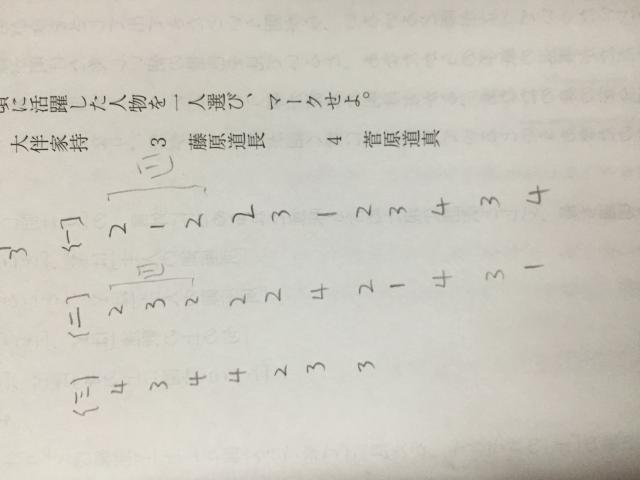 に活躍した人物を一人選び、マークせよ。
大伴家持 3 藤原道長 4 菅原道真
3
[一] 2 1 2 2 3 1 2 3 4 3 4
[二] 2 3 2 2 2 4 2 1 4 3 1
[三] 4 3 4 4 2 3 3